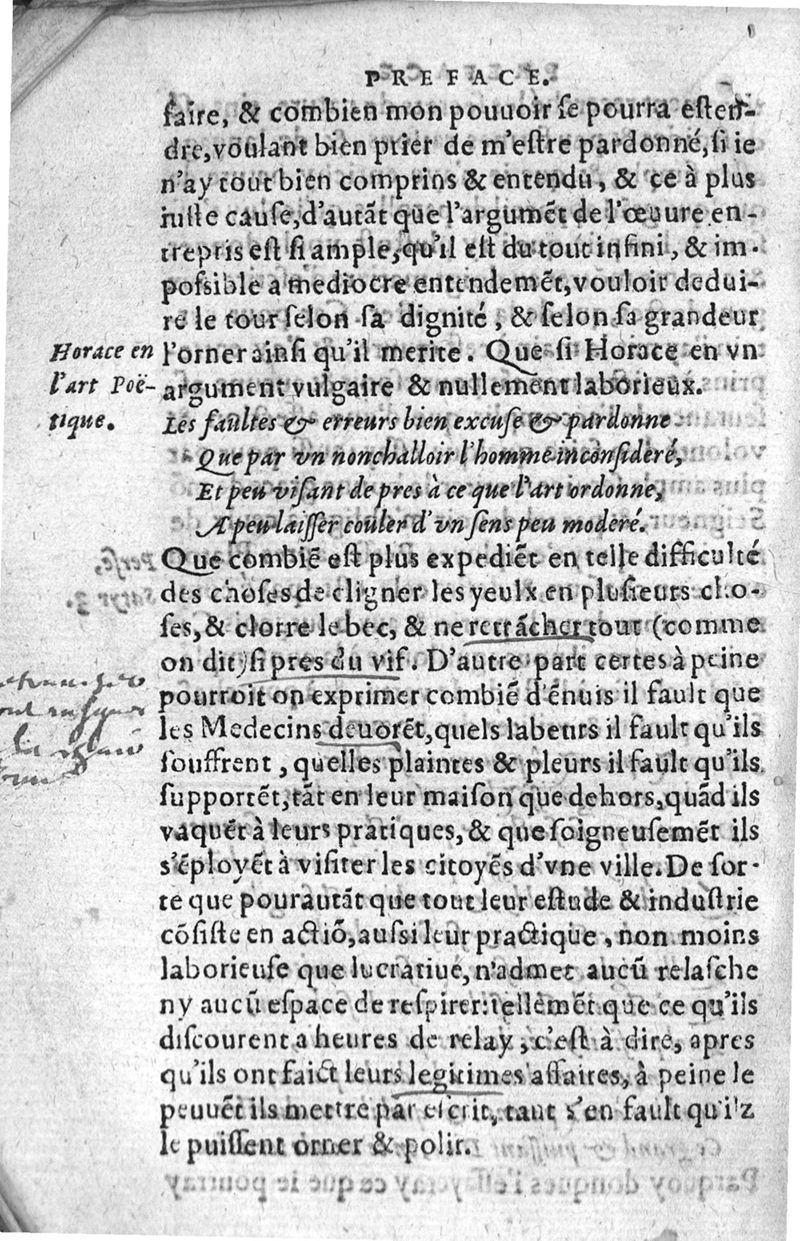 PREFACE.
faire, & combien mon pouuoir ſe pourra eſten-
dre, voulant bien prier de m'eſtre pardonné, ſi ie
n'ay tout bien comprins & entendu, & ce à plus
iuſte cauſe, d'autãt que l'argumẽt de l'œuure en-
trepris eſt ſi ample, qu'il eſt du tout infini, & im-
poſsible a mediocre entendemẽt, vouloir dedui-
re le tout ſelon ſa dignité, & ſelon ſa grandeur
Horace en
l'art Poë-
tique.
l'orner ainſi qu'il merite. Que ſi Horace en vn
argument vulgaire & nullement laborieux.
Les faultes & erreurs bien excuſe & pardonne
Que par vn nonchalloir l'homme inconſideré,
Et peu viſant de pres à ce que l'art ordonne,
A peu laiſſer couler d'vn ſens peu moderé.
Que combiẽ eſt plus expediẽt en telle difficulté
des choſes de cligner les yeulx en pluſieurs cho-
ſes, & clorre le bec, & ne retrãcher tout (comme
on dit) ſi pres du vif. D'autre part certes à peine
pourroit on exprimer combiẽ d'ẽnuis il fault que
les Medecins deuorẽt, quels labeurs il fault qu'ils
ſouffrent, quelles plaintes & pleurs il fault qu'ils
ſupportẽt, tãt en leur maiſon que dehors, quãd ils
vaquẽt à leurs pratiques, & que ſoigneuſemẽt ils
s'ẽployẽt à viſiter les citoyẽs d'vne ville. De ſor-
te que pourautãt que tout leur eſtude & induſtrie
cõſiſte en actiõ, auſsi leur practique, non moins
laborieuſe que lucratiue, n'admet aucũ relaſche
ny aucũ eſpace de reſpirer: tellemẽt que ce qu'ils
diſcourent a heures de relay, c'eſt à dire, apres
qu'ils ont faict leurs legitimes affaires, à peine le
peuuẽt ils mettre par eſcrit, tant s'en fault qu'ilz
le puiſſent orner & polir.